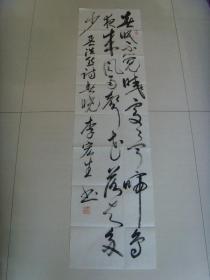 春眠不觉晓处处闻啼鸟
夜来风雨声花落知多
少 孟浩然诗春晓 李宏生书